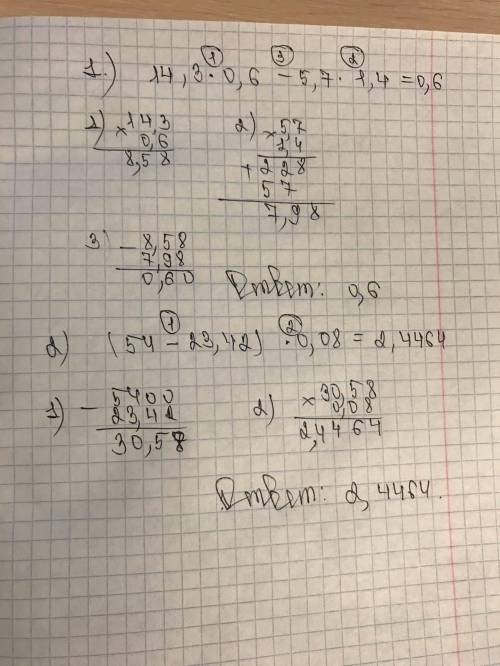 ① ③ ②
1.) 14,3 · 0,6 − 5,7 · 1,4 = 0,6
1) × 14,3
0,6
8,58
2) × 5,7
1,4
+ 228
57
7,98
3) − 8,58
7,98
0,60
Ответ: 0,6
① ②
2) (54 − 23,42) · 0,08 = 2,4464
1) − 5400
23,42
30,58
2) × 30,58
0,08
2,4464
Ответ: 2,4464.